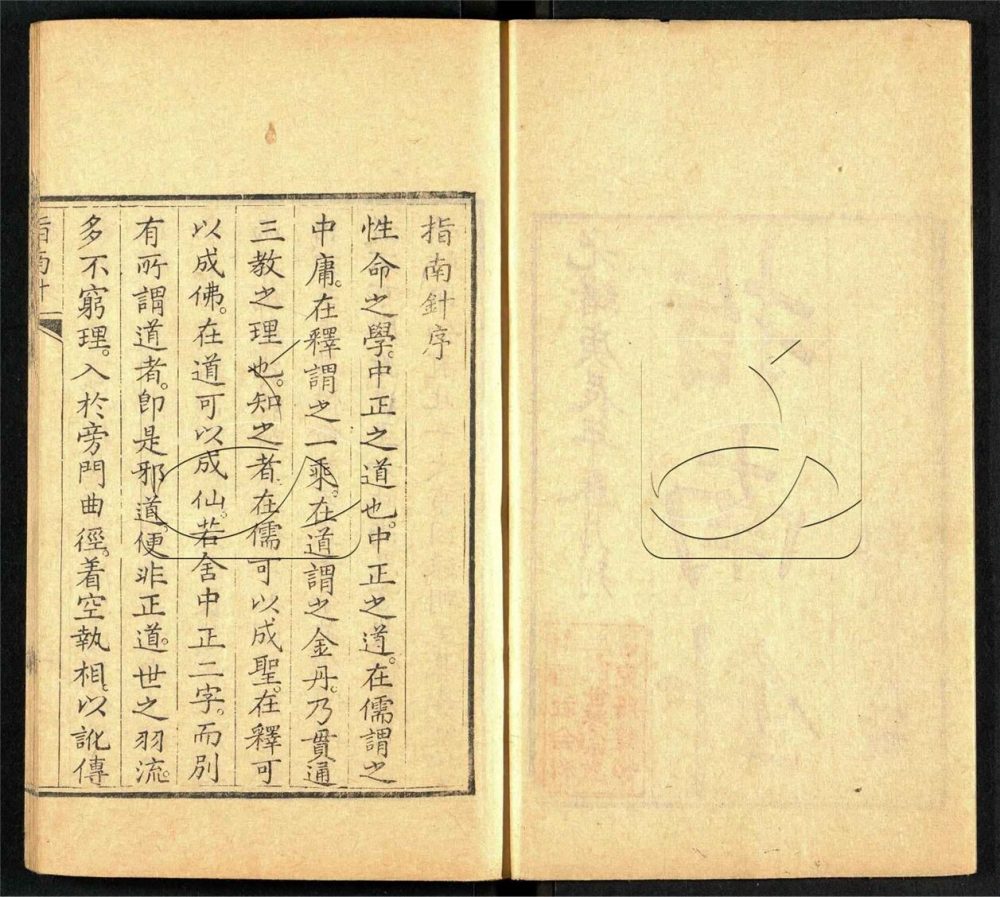 指南針序
性命之學。中正之道也。中正之道。在儒謂之
中庸。在釋謂之一乘。在道謂之金丹。乃貫通
三教之理也。知之者。在儒可以成聖。在釋可
以成佛。在道可以成仙。若舍中正二字。而別
有所謂道者。卽是邪道。便非正道。世之羽流。
多不窮理。入於旁門曲徑。着空執相。以訛傳
指南針